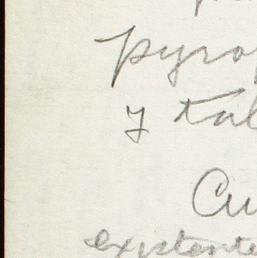 pyro
y tal
Cu
existente